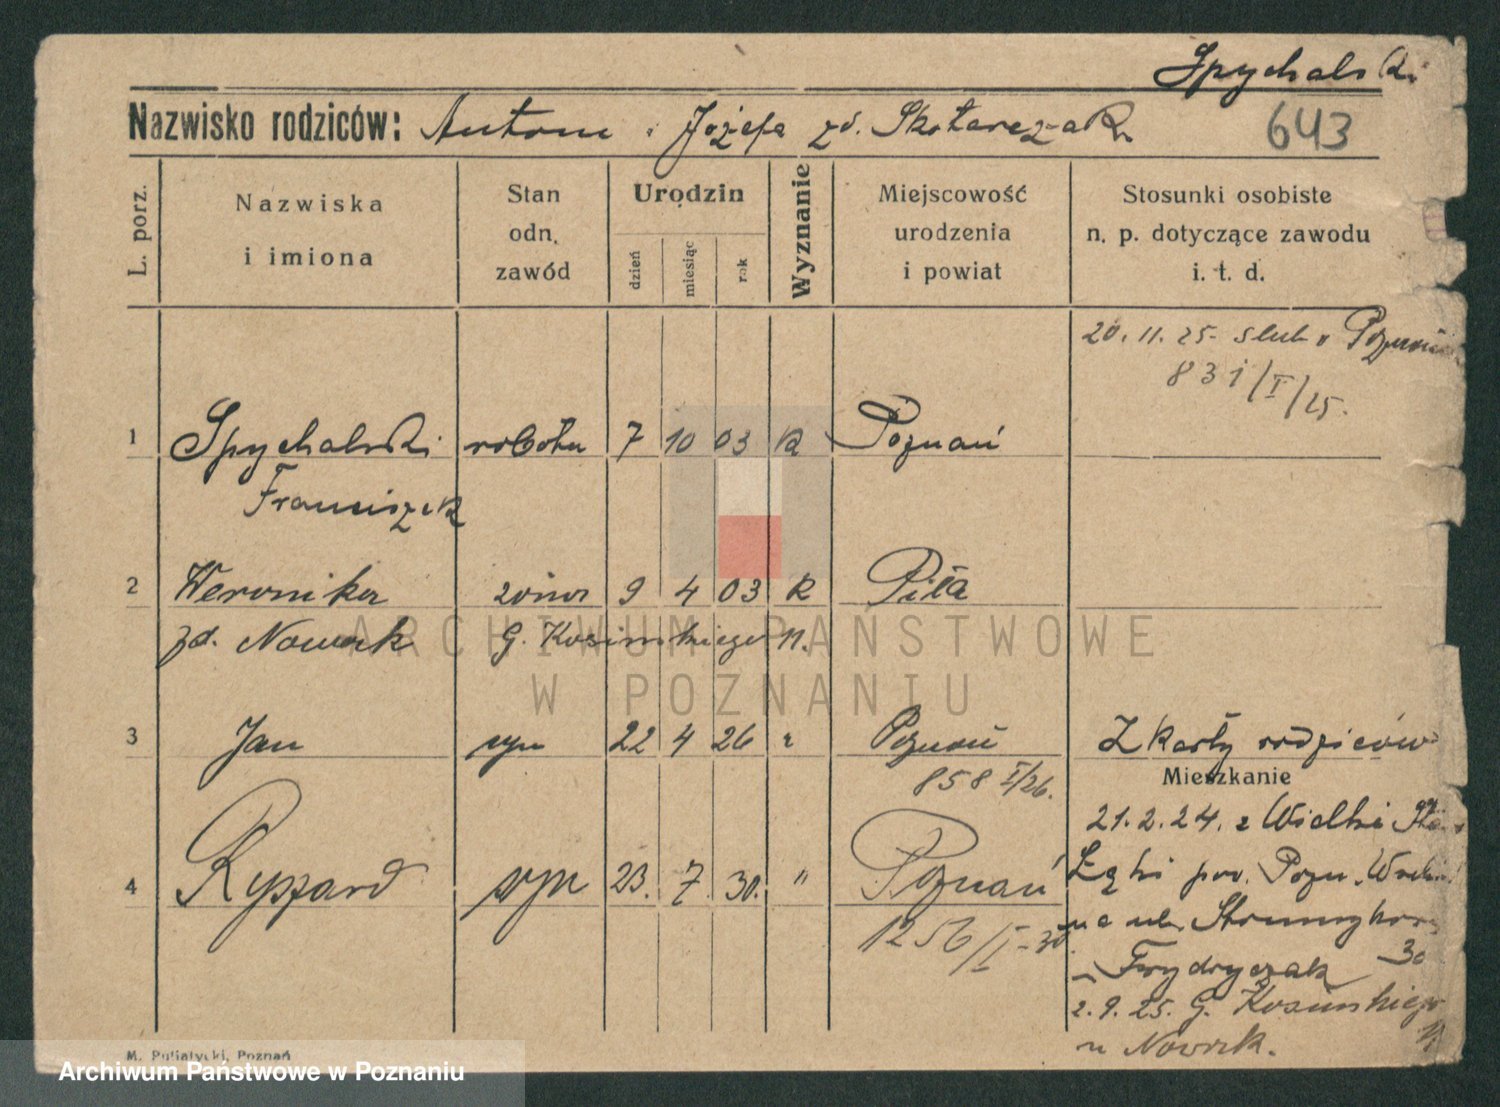 Spychalski
Nazwisko rodziców: Antoni i Józefa zd. Skotarczak
643
L. porz.
Nazwiska
i imiona
Stan
odn.
zawód
Urodzin
dzień
miesiąc
rok
Wyznanie
Miejscowość
urodzenia
i powiat
Stosunki osobiste
n. p. dotyczące zawodu
i. t. d.
20. 11. 25. slub w Poznaniu
831/I/25.
1 Spychalski robotn 7 10 03 k Poznań
Franciszek
2 Weronika żona 9 4 03 k Piła
zd. Nowak G. Kosinskiego 11.
3 Jan syn 22 4 26 Poznań Z karty rodziców
858 I/26.
Mieszkanie
21. 2. 24. z Wielki
4 Ryszard syn 23. 7. 30. " Poznań
Łęki pow. Pozn.
1256/I-30.
na ul.
30
Frydryczak
2. 9. 25. G. Kosińskiego
11
u Nowak.
M. Putiatycki, Poznań
ARCHIWUM PAŃSTWOWE
W POZNANIU
Archiwum Państwowe w Poznaniu